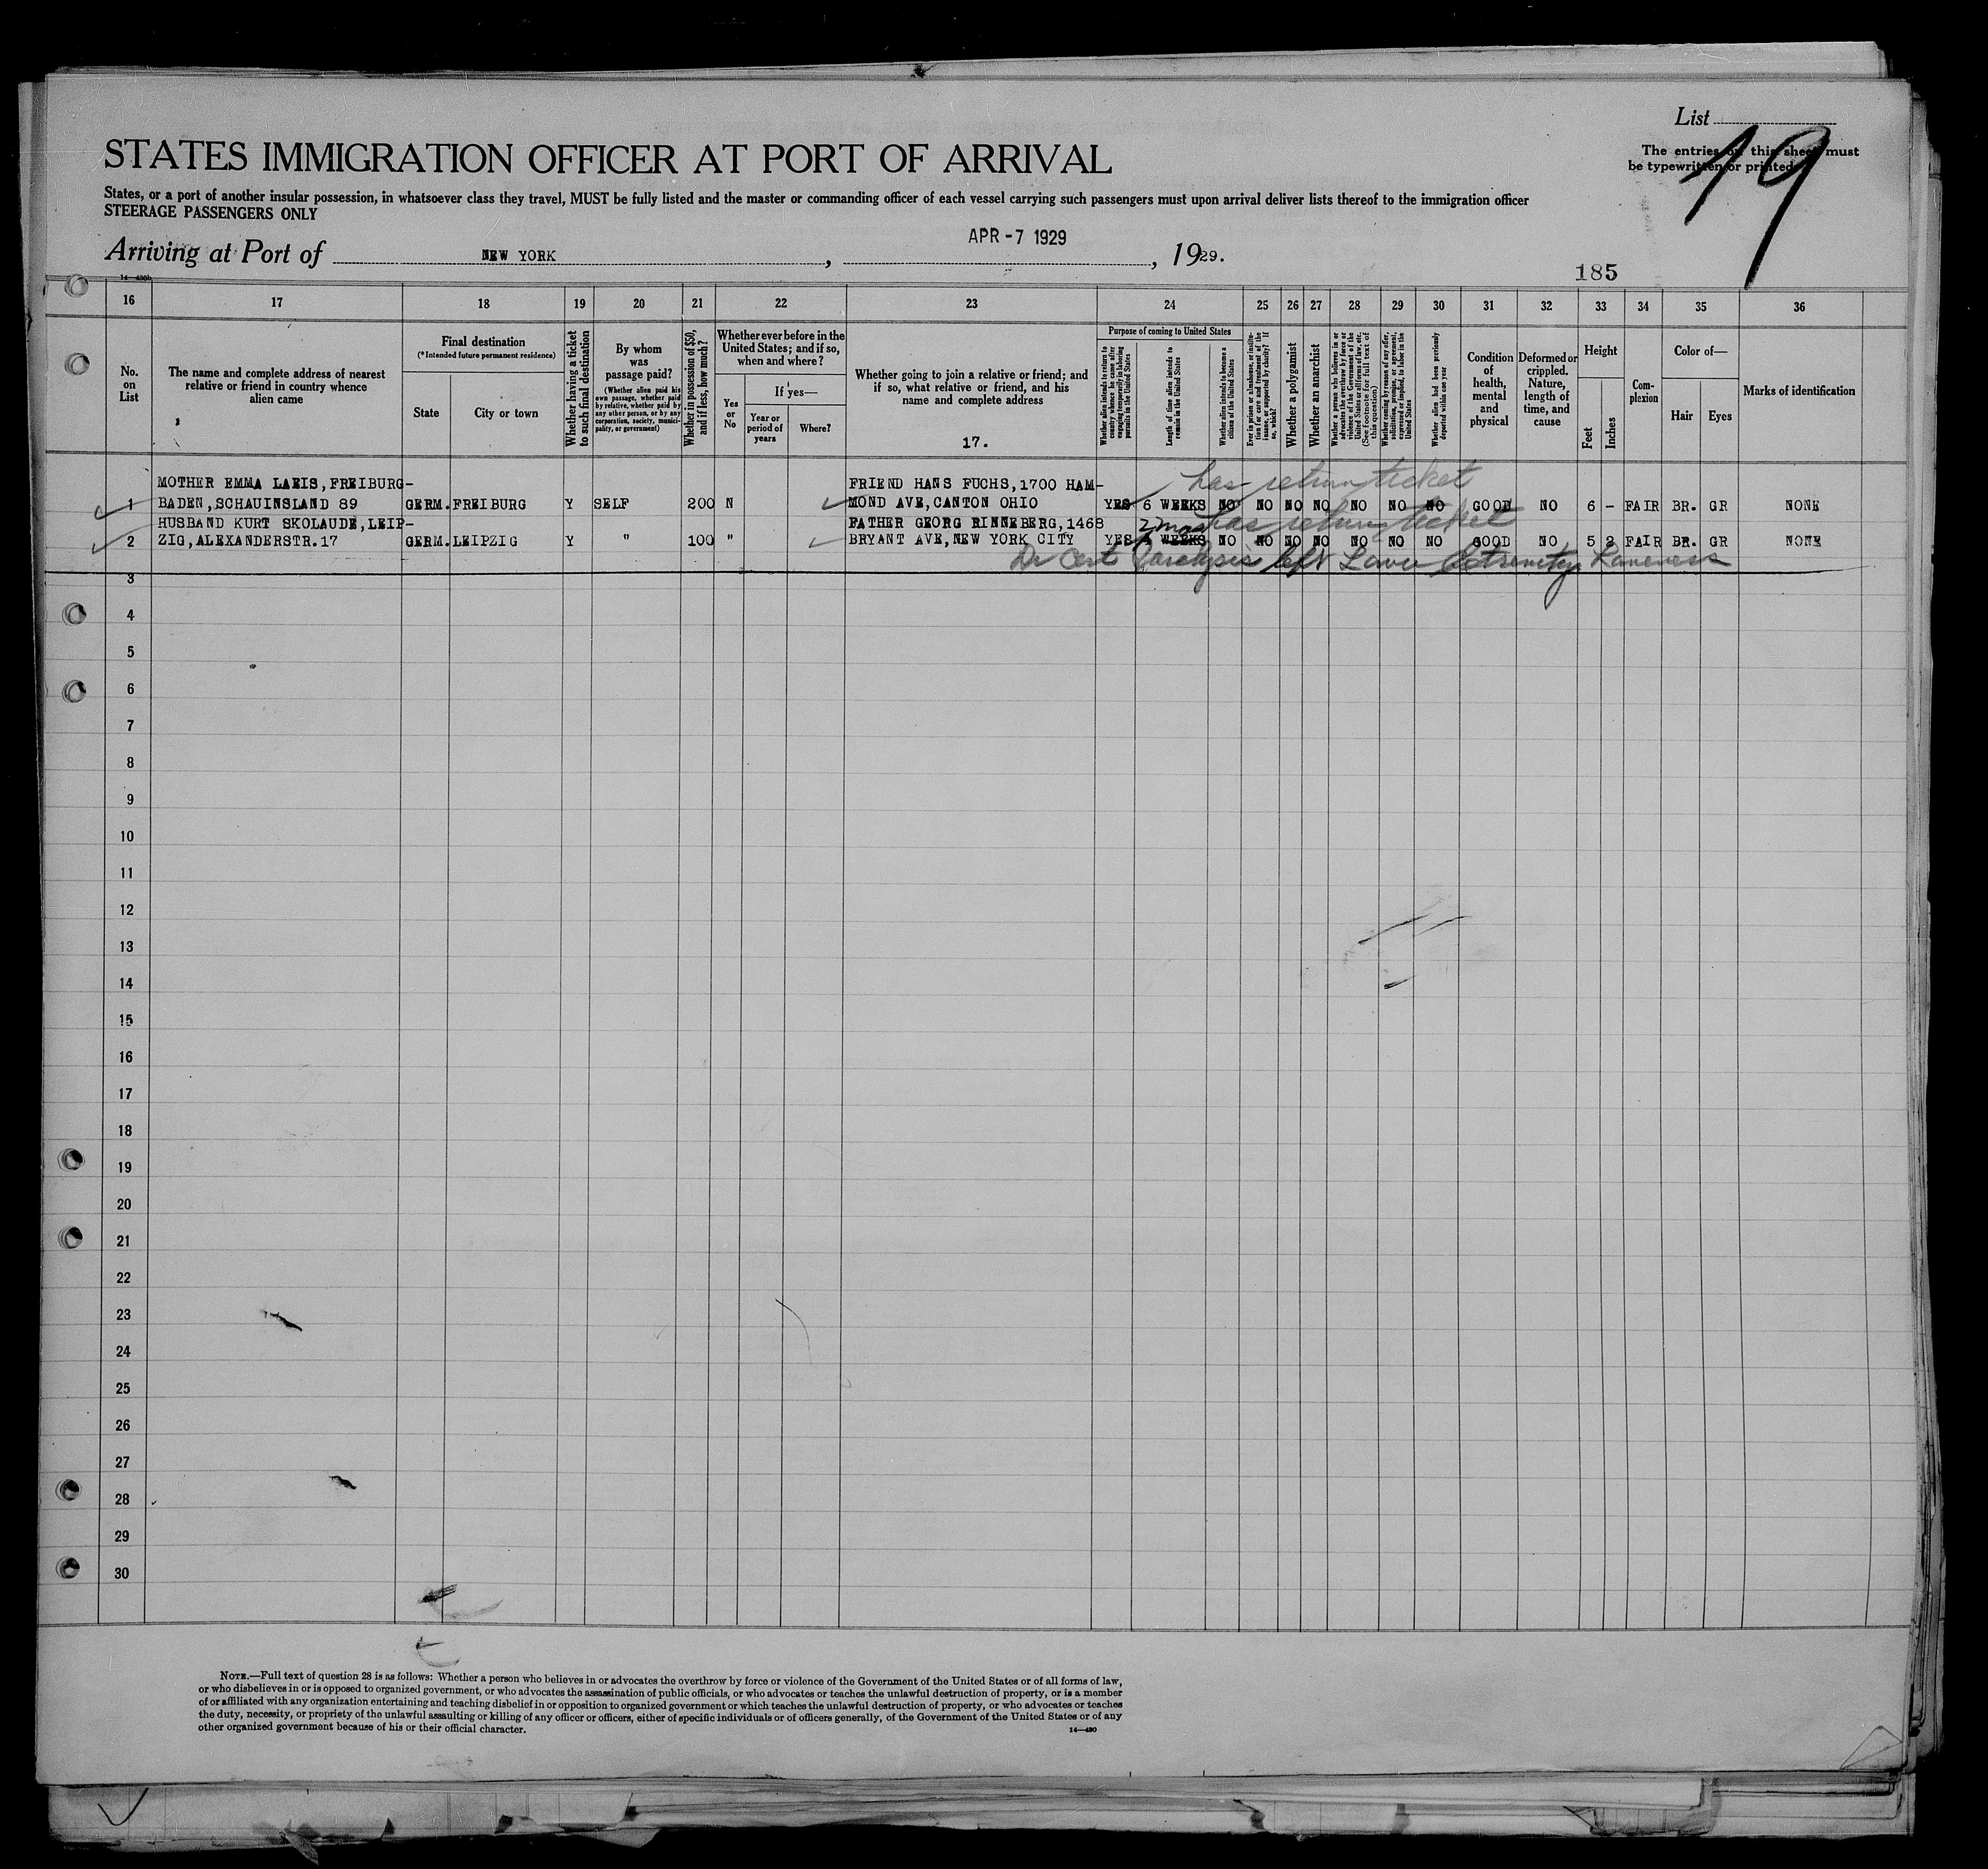 List
19
The entries on this sheet must
be typewritten or printed.
STATES IMMIGRATION OFFICER AT PORT OF ARRIVAL
States, or a port of another insular possession, in whatsoever class they travel, MUST be fully listed and the master or commanding officer of each vessel carrying such passengers must upon arrival deliver lists thereof to the immigration officer
STEERAGE PASSENGERS ONLY
Arriving at Port of NEW YORK, APR -7 1929, 1929.
185
16 17 18 19 20 21 22 23 24 25 26 27 28 29 30 31 32 33 34 35 36
No.
on
List
The name and complete address of nearest
relative or friend in country whence
alien came
Final destination
(*Intended future permanent residence)
State
City or town
Whether having a ticket
to such final destination
By whom
was
passage paid?
(Whether alien paid his
own passage, whether paid
by relative, whether paid by
any other person, or by any
corporation, society, munici-
pality, or government)
Whether in possession of $50,
and if less, how much?
Whether ever before in the
United States; and if so,
when and where?
Yes
or
No
If yes—
Year or
period of
years
Where?
Whether going to join a relative or friend; and
if so, what relative or friend, and his
name and complete address
17.
Purpose of coming to United States
Whether alien intends to return to
country whence he came after
engaging temporarily in laboring
pursuits in the United States
Length of time alien intends to
remain in the United States
Whether alien intends to become a
citizen of the United States
Ever in prison or almshouse, or institu-
tion for care and treatment of the
insane, or supported by charity? If
so, which?
Whether a polygamist
Whether an anarchist
Whether a person who believes in or
advocates the overthrow by force or
violence of the Government of the
United States or all forms of law, etc.
(See footnote for full text of
this question)
Whether coming by reason of any offer,
solicitation, promise, or agreement,
expressed or implied, to labor in the
United States
Whether alien had been previously
deported within one year
Condition
of
health,
mental
and
physical
Deformed or
crippled.
Nature,
length of
time, and
cause
Height
Feet
Inches
Com-
plexion
Color of—
Hair
Eyes
Marks of identification
has return ticket
MOTHER EMMA LAEIS, FREIBURG- FRIEND HANS FUCHS, 1700 HAM-
1 BADEN, SCHAUINSLAND 89 GERM. FREIBURG Y SELF 200 N MOND AVE, CANTON OHIO YES 6 WEEKS NO NO NO NO NO NO NO GOOD NO 6 - FAIR BR. GR NONE
HUSBAND KURT SKOLAUDE, LEIP- FATHER GEORG RINNEBERG, 1468 2 mos has return ticket
2 ZIG, ALEXANDERSTR. 17 GERM. LEIPZIG Y " 100 " BRYANT AVE, NEW YORK CITY YES WEEKS NO NO NO NO NO NO NO GOOD NO 5 2 FAIR BR. GR NONE
Dr Cert Paralysis left Lower Extremity Lameness
3
4
5
6
7
8
9
10
11
12
13
14
15
16
17
18
19
20
21
22
23
24
25
26
27
28
29
30
NOTE.—Full text of question 28 is as follows: Whether a person who believes in or advocates the overthrow by force or violence of the Government of the United States or of all forms of law,
or who disbelieves in or is opposed to organized government, or who advocates the assassination of public officials, or who advocates or teaches the unlawful destruction of property, or is a member
of or affiliated with any organization entertaining and teaching disbelief in or opposition to organized government or which teaches the unlawful destruction of property, or who advocates or teaches
the duty, necessity, or propriety of the unlawful assaulting or killing of any officer or officers, either of specific individuals or of officers generally, of the Government of the United States or of any
other organized government because of his or their official character.
14—430